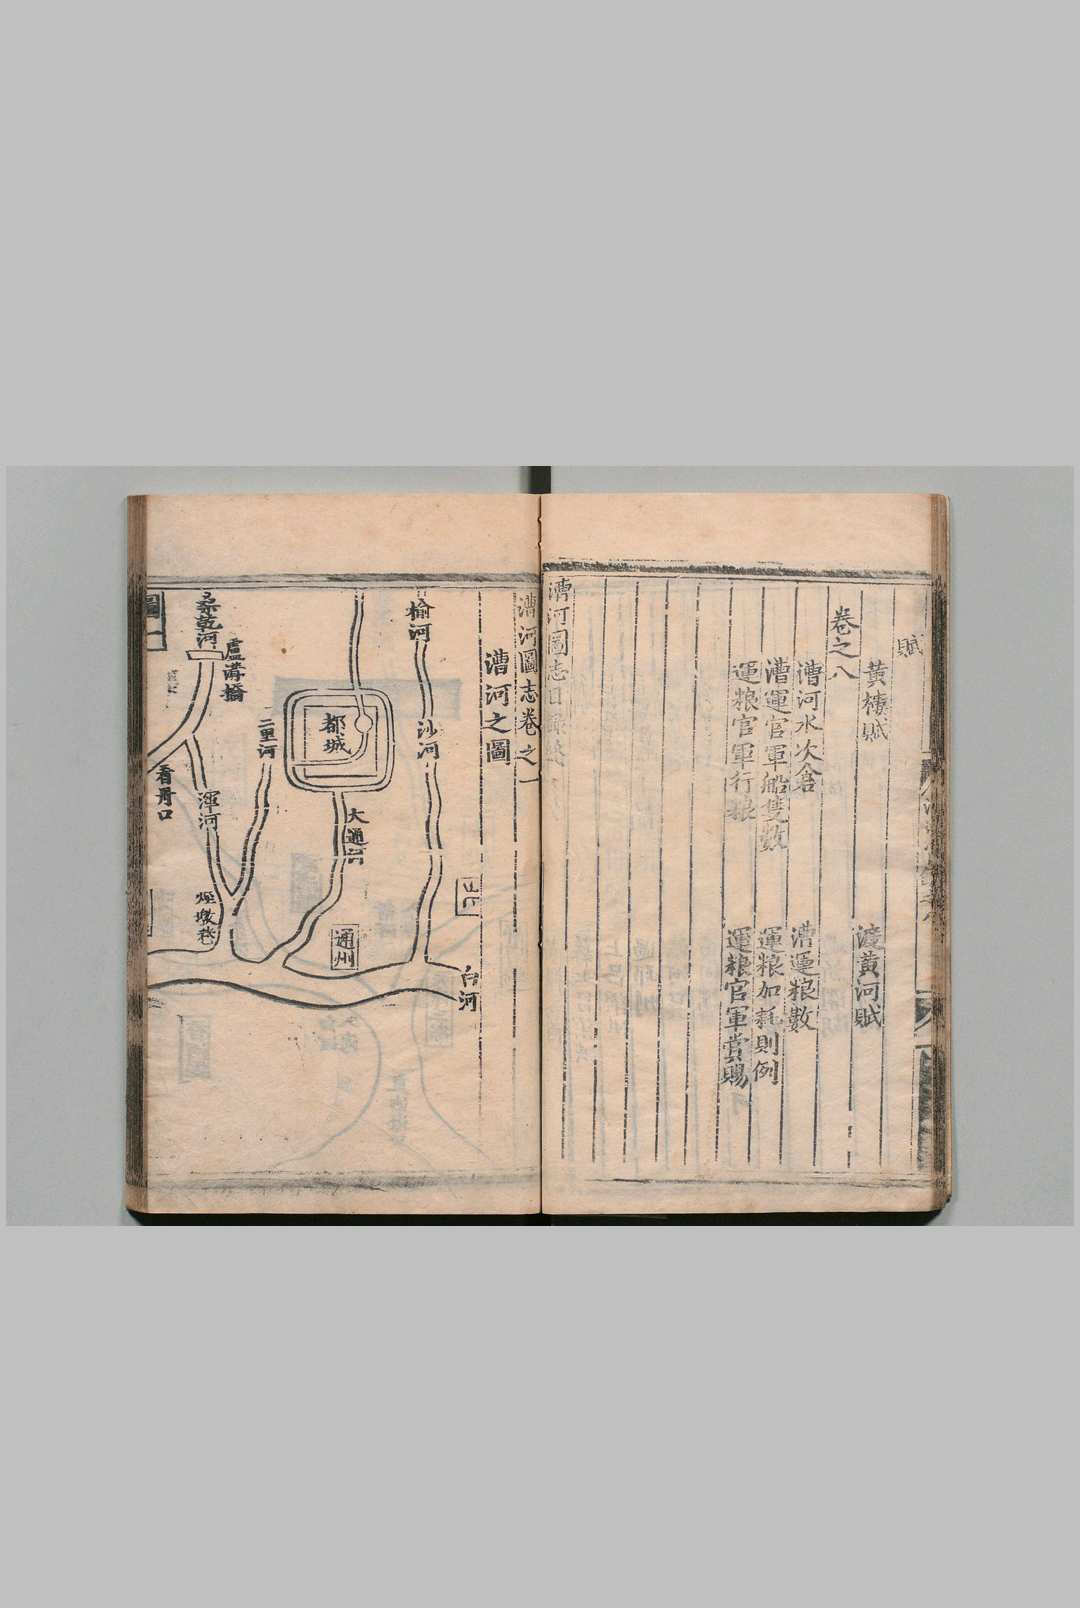 賦
黃樓賦
渡黃河賦
卷之八
漕河水次倉
漕運粮數
漕運官軍船隻數
運粮加耗則例
運粮官軍行粮
運粮官軍賞賜
漕河圖志目錄終
漕河圖志卷之一
漕河之圖
白河
榆河
沙河
通州
大通河
都城
二里河
盧溝橋
桑乾河
渾河
看丹口